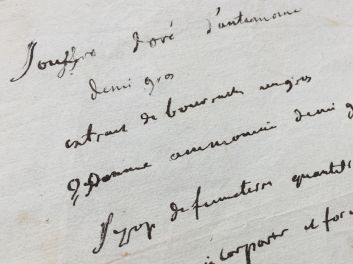 Souffre doré d'antimoine
demi gros
extrait de bourrache un gros
gomme ammoniac demi g
Syrop de fumeterre quantit
incorporer et for